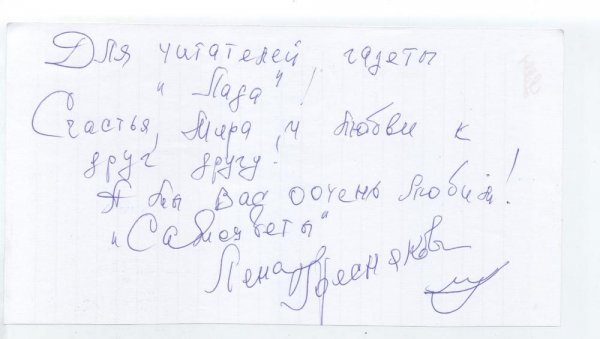 Для читателей газеты
"Лада"!
Счастья, Мира, и Любви к
друг другу!
А мы Вас оочень Любим!
"Самоцветы"
Лена Преснякова